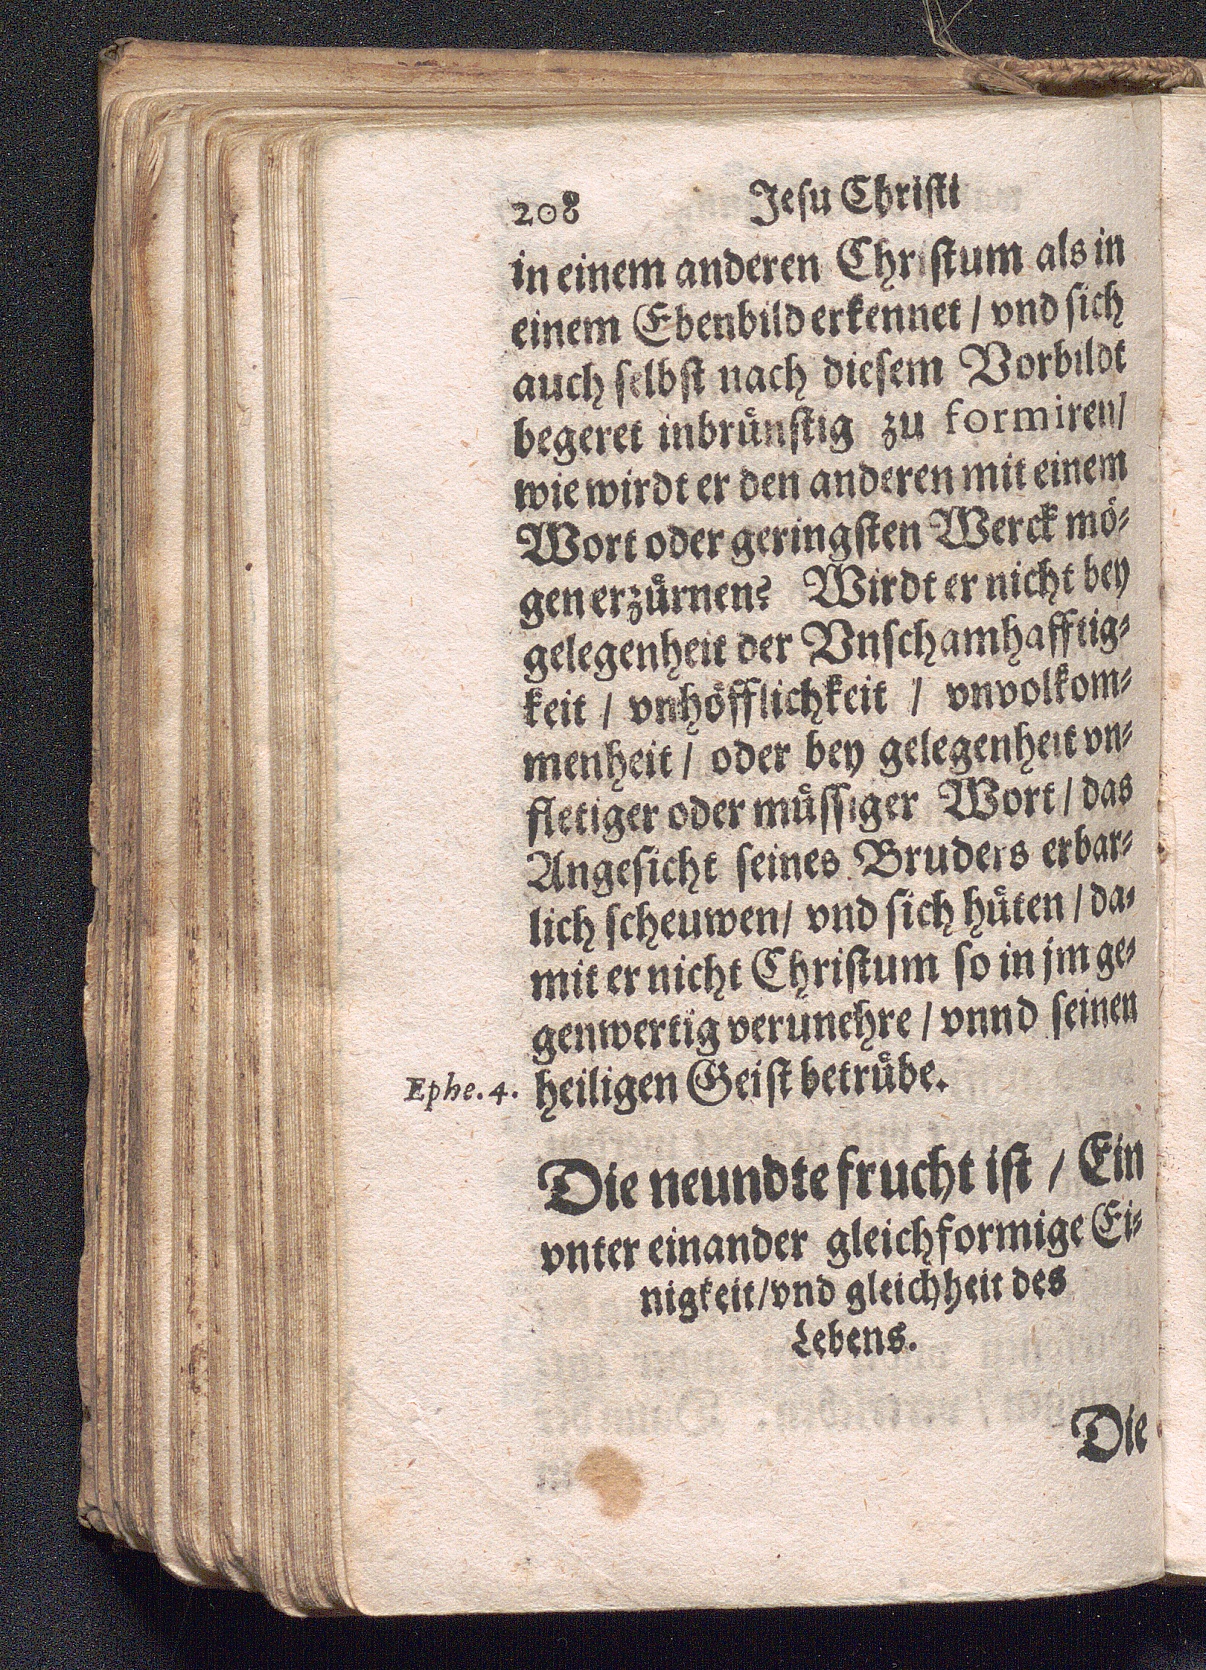 208 Jesu Christi
in einem anderen Christum als in
einem Ebenbild erkennet / vnd sich
auch selbst nach diesem Vorbildt
begeret inbrünstig zu formiren/
wie wirdt er den anderen mit einem
Wort oder geringsten Werck mö-
gen erzürnen? Wirdt er nicht bey
gelegenheit der Vnschamhafftig-
keit / vnhöfflichkeit / vnvolkom-
menheit / oder bey gelegenheit vn-
fletiger oder müssiger Wort / das
Angesicht seines Bruders erbar-
lich scheuwen/ vnd sich hüten / da-
mit er nicht Christum so in jm ge-
genwertig verunehre / vnnd seinen
Ephe. 4. heiligen Geist betrübe.
Die neundte frucht ist / Ein
vnter einander gleichformige Ei-
nigkeit/vnd gleichheit des
Lebens.
Die